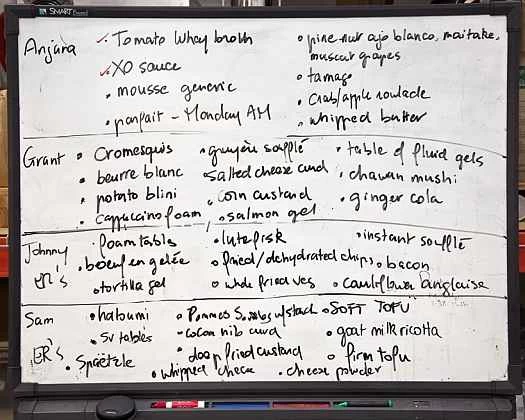 SMART Board
Anjana
✓ Tomato Whey broth
✓ XO sauce
• mousse generic
• parfait - Monday AM
• pine-nut ajo blanco, maitake,
muscat grapes
• tamago
• Crab/apple roulade
• whipped butter
Grant
• Cromesquis
• beurre blanc
• potato blini
• Cappuccino foam
• gruyère soufflé
• salted cheese curd
• corn custard
• salmon gel
• table of fluid gels
• chawan mushi
• ginger cola
Johnny
ER's
• foam tables
• boeuf en gelée
• tortilla gel
• lutefisk
• fried/dehydrated chips
• whole fried ves
• instant soufflé
• bacon
• cauliflower anglaise
Sam
ER's
• haloumi
• SV tables
• Spaetzle
• Pommes w/stack
• cocoa nib curd
• deep fried custard
• whipped cheese
• SOFT TOFU
• goat milk ricotta
• firm tofu
• cheese powder